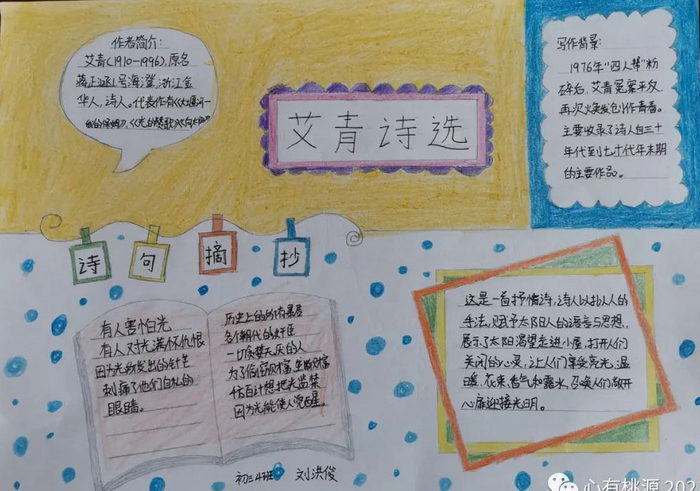 作者简介：
艾青(1910-1996),原名
蒋正涵,号海澄,浙江金
华人,诗人。代表作有《大堰河—
我的保姆》、《光的赞歌》《向太阳》
艾青诗选
写作背景：
1976年“四人帮”粉
碎后,艾青冤案平反,
再次焕发创作青春。
主要收录了诗人自三十
年代到七十年代年末期
的主要作品。
诗句摘抄
有人害怕光
有人对光满怀仇恨
因为光所发出的针芒
刺痛了他们自私的
眼睛。
历史上的所有暴君
各个朝代的奸臣
一切贪婪无厌的人
为了偷窃财富、垄断财富
千方百计想把光监禁
因为光能使人觉醒。
这是一首抒情诗,诗人以拟人的
手法,赋予太阳人的语言与思想,
展示了太阳渴望走进小屋,打开人们
关闭的心灵,让人们享受亮光,温
暖、花束、香气和露水,召唤人们敞开
心扉迎接光明。
初三4班 刘洪俊
心有桃源 202